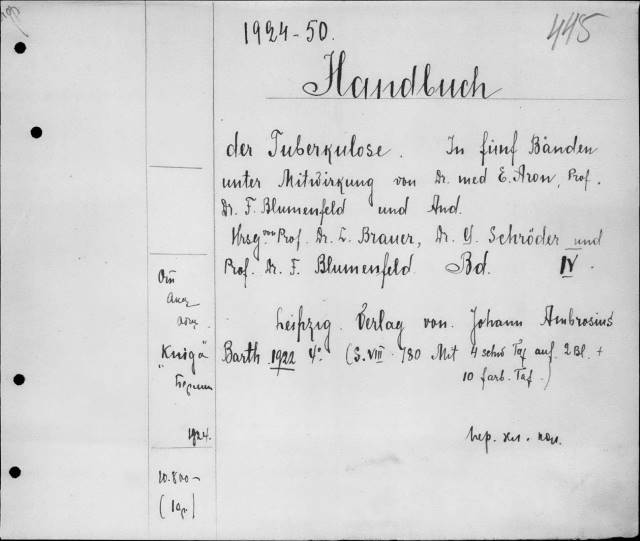 1924-50.
445
Handbuch
der Tuberkulose. In fünf Bänden
unter Mitwirkung von Dr. med E. Aron, Prof.
Dr. F. Blumenfeld und And.
Hrsg von Prof. Dr. L. Brauer, Dr. G. Schröder und
Prof. Dr. F. Blumenfeld Bd. IV.
Leipzig. Verlag von Johann Ambrosius
Barth 1922 4°. (S. VIII · 780 Mit 4 schw Taf auf. 2 Bl. +
10 farb. Taf.)
"Kniga"
1924.
10.800-